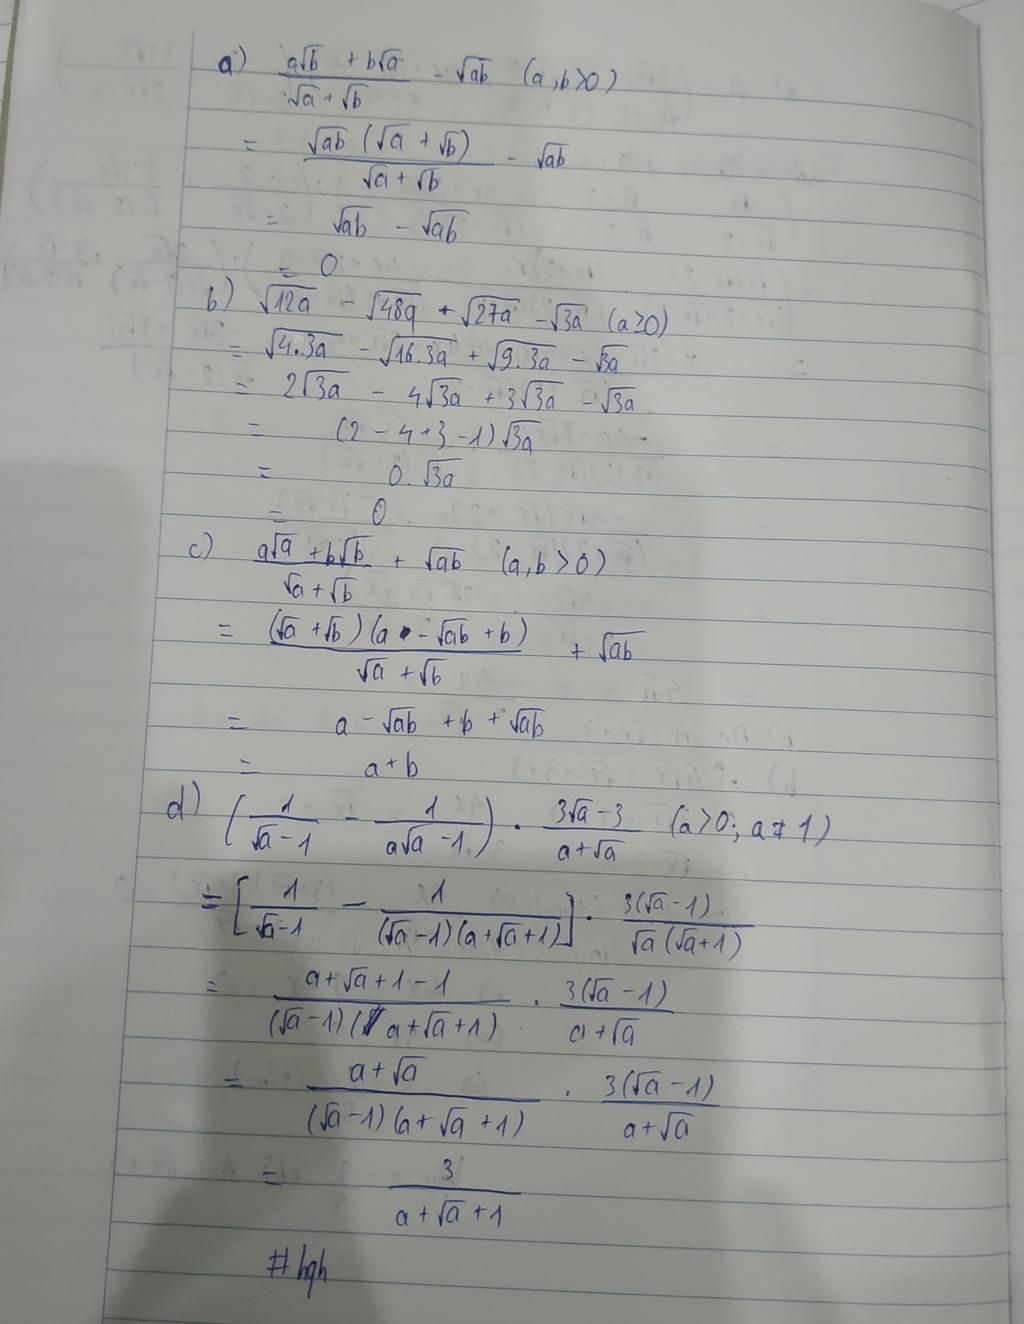 a) (a√b + b√a)/(√a + √b) - √ab (a, b > 0)
= (√ab (√a + √b))/(√a + √b) - √ab
= √ab - √ab
= 0
b) √12a - √48a + √27a - √3a (a ≥ 0)
= √4.3a - √16.3a + √9.3a - √3a
= 2√3a - 4√3a + 3√3a - √3a
= (2 - 4 + 3 - 1)√3a
= 0.√3a
= 0
c) (a√a + b√b)/(√a + √b) + √ab (a, b > 0)
= ((√a + √b)(a - √ab + b))/(√a + √b) + √ab
= a - √ab + b + √ab
= a + b
d) (1/(√a - 1) - 1/(a√a - 1)) . (3√a - 3)/(a + √a) (a > 0; a ≠ 1)
= [1/(√a - 1) - 1/((√a - 1)(a + √a + 1))] . (3(√a - 1))/(√a(√a + 1))
= (a + √a + 1 - 1)/((√a - 1)(a + √a + 1)) . (3(√a - 1))/(a + √a)
= (a + √a)/((√a - 1)(a + √a + 1)) . (3(√a - 1))/(a + √a)
= 3/(a + √a + 1)
#hgh